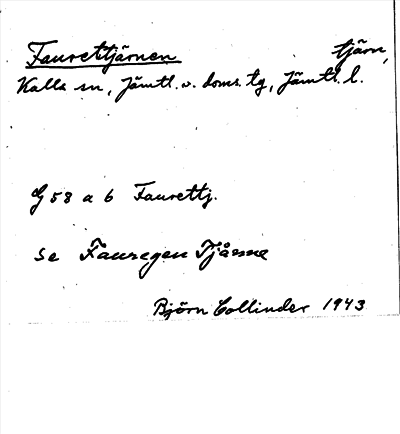 Faurettjärnen tjärn,
Kalls sn, Jämtl. v. doms. tg, Jämtl. l.
G 58 a b Faurettj.
Se Fauregen Tjåsme
Björn Collinder 1943